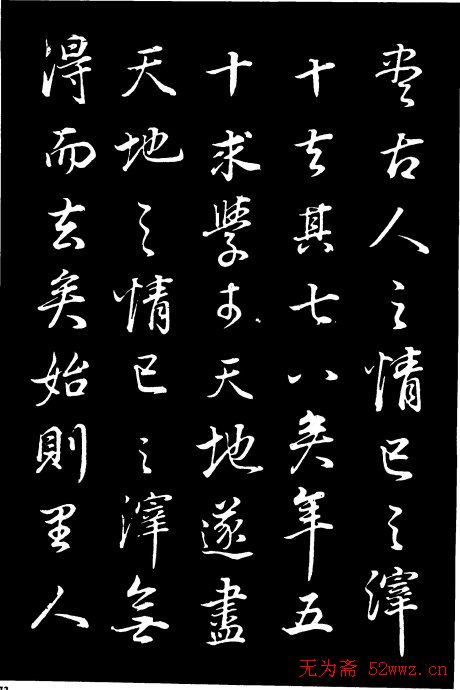 盡古人之情已之滓
十去其七八矣年五
十求學於天地遂盡
天地之情已之滓無
得而去矣始則里人
无为斋 52wwz.cn